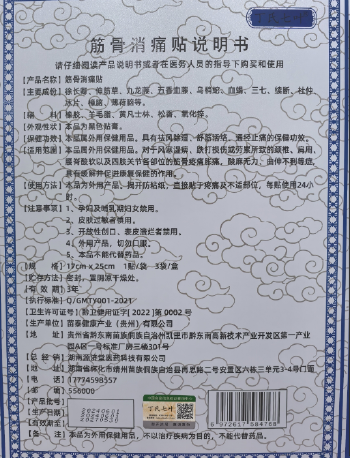 筋骨消痛贴说明书
请仔细阅读产品说明书或者在医务人员的指导下购买和使用
【产品名称】筋骨消痛贴
【主要成份】徐长卿、伸筋草、九龙藤、五香血藤、乌梢蛇、血竭、三七、续断、杜仲、
冰片、樟脑、薄荷脑等。
【辅 料】橡胶、羊毛脂、黄凡士林、松香、氧化锌。
【外观性状】本品为黑色贴膏。
【保健功效】本品属外用保健用品。具有祛风除湿、舒筋活络、通经止痛的保健功效。
【适用范围】本品属外用保健用品。对于风寒湿痹、跌打损伤或劳累所致的颈椎、肩周、
腰脊酸软以及四肢关节各部位的筋骨疼痛胀痛、酸麻无力、曲伸不利等症
具有缓解和促进康复保健的作用。
【使用方法】本品为外用产品，揭开防粘纸，直接贴于疼痛及不适部位，每贴使用24小
时。
【注意事项】1、孕妇及哺乳期妇女禁用。
2、皮肤过敏者慎用。
3、开放性创口、表皮溃烂者禁用。
4、外用产品，切勿口服。
5、本品不能代替药品。
【规 格】17cm x 25cm 1贴/袋 3袋/盒
【贮存方法】密封，置阴凉干燥处。
【有 效 期】3年
【执行标准】Q/GMTY001-2021
【卫生许可证号】黔卫健用证字 [ 2022 ] 第 0002 号
【生产企业】苗泰健康产业（贵州）有限公司
【地 址】贵州省黔东南苗族侗族自治州凯里市黔东南高新技术产业开发区第一产业
园A区一号标准厂房三楼301号
【总 经 销】湖南源济堂医药科技有限公司
【地 址】湖南省怀化市靖州苗族侗族自治县西思路二号安置区六栋三单元3-4号门面
【电 话】17774598557
【邮 编】556000
【产品批号】
【生产日期】
【有效期至】
【备 注】本品为外用保健用品，不以治疗疾病为目的，不能代替药品。
6 972617 584768